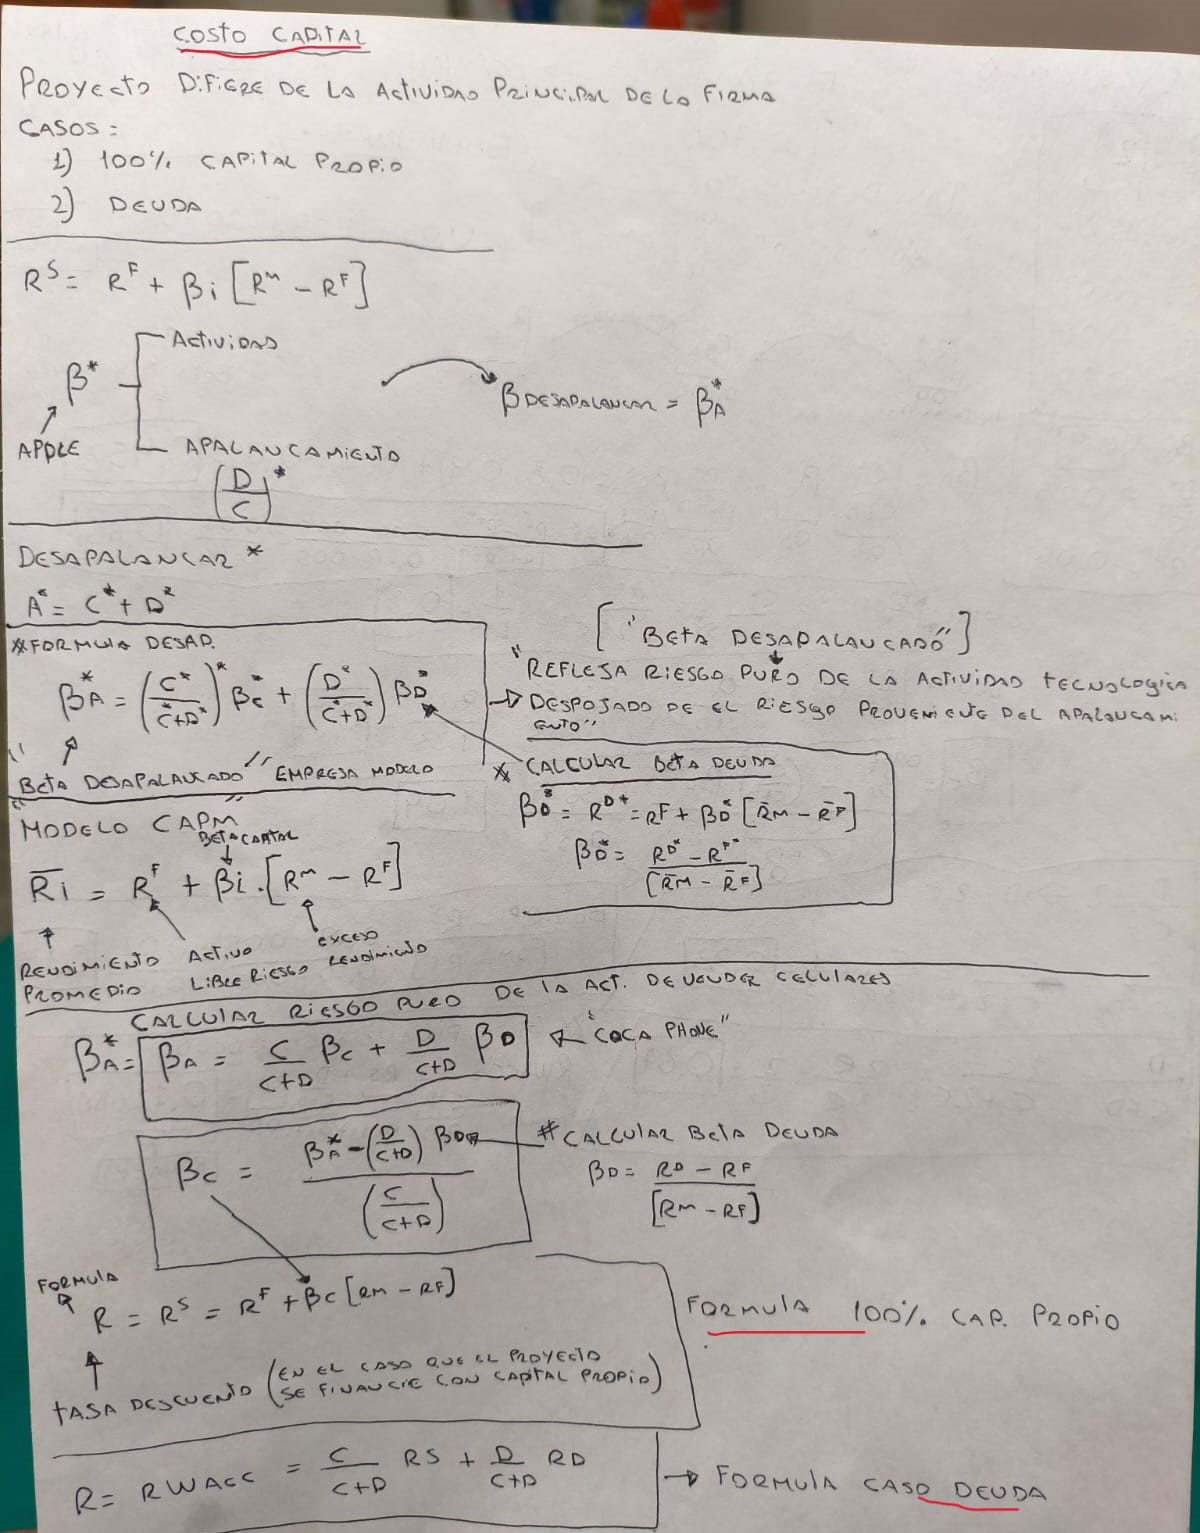 COSTO CAPITAL
PROYECTO DIFIERE DE LA ACTIVIDAD PRINCIPAL DE LA FIRMA
CASOS:
1) 100% CAPITAL PROPIO
2) DEUDA
R^S = R^F + βi [R^M - R^F]
β*
ACTIVIDAD
APPLE
APALANCAMIENTO
(D/C)*
β DESAPALANCAR = β*A
DESAPALANCAR *
A* = C* + D*
*FORMULA DESAP.
β*A = (C*/C*+D*)* β*C + (D*/C*+D*) β*D
"BETA DESAPALANCADO" EMPRESA MODELO
["BETA DESAPALANCADO"]
"REFLEJA RIESGO PURO DE LA ACTIVIDAD TECNOLOGICA
→ DESPOJADO DE EL RIESGO PROVENIENTE DEL APALANCAMI
ENTO"
* CALCULAR BETA DEUDA
β*D = R^D* = R^F + β*D [R̄M - R̄F]
β*D = R^D* - R^F* / [R̄M - R̄F]
"MODELO CAPM"
BETA CAPITAL
R̄i = R^F + βi . [R^M - R^F]
RENDIMIENTO PROMEDIO
ACTIVO LIBRE RIESGO
EXCESO RENDIMIENTO
CALCULAR RIESGO PURO DE LA ACT. DE VENDER CELULARES
β*A = βA = C/C+D βC + D/C+D βD ← "COCA PHONE"
βC = β*A - (D/C+D) βD / (C/C+D)
# CALCULAR BETA DEUDA
βD = RD - RF / [RM - RF]
FORMULA
R = R^S = R^F + βC [RM - RF]
FORMULA 100% CAP. PROPIO
TASA DESCUENTO (EN EL CASO QUE EL PROYECTO
SE FINANCIE CON CAPITAL PROPIO)
R = RWACC = C/C+D RS + D/C+D RD
→ FORMULA CASO DEUDA